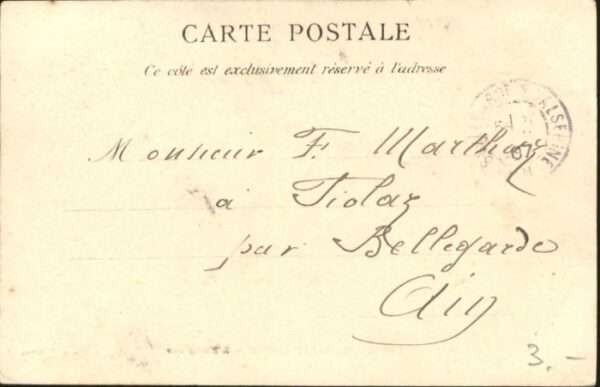 CARTE POSTALE
Ce côté est exclusivement réservé à l'adresse
Monsieur F. Marthoz
à Tiolaz
par Bellegarde
Ain
3.-